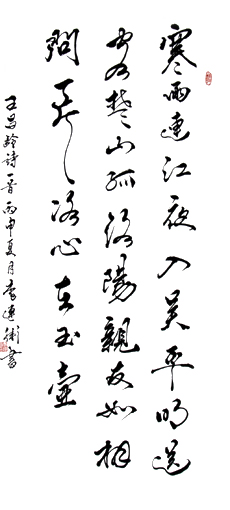 寒雨連江夜入吳平明送
客楚山孤洛陽親友如相
問一片冰心在玉壺
王昌齡詩一首丙申夏月李連書